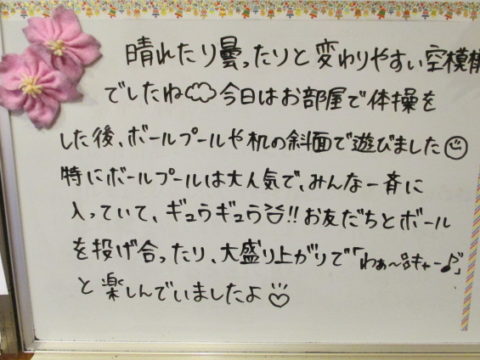 晴れたり曇ったりと変わりやすい空模様
でしたね 今日はお部屋で体操を
した後、ボールプールや机の斜面で遊びました
特にボールプールは大人気で、みんな一斉に
入っていて、ギュウギュウ!! お友だちとボール
を投げ合ったり、大盛り上がりで「わぁ〜キャー♪」
と楽しんでいましたよ